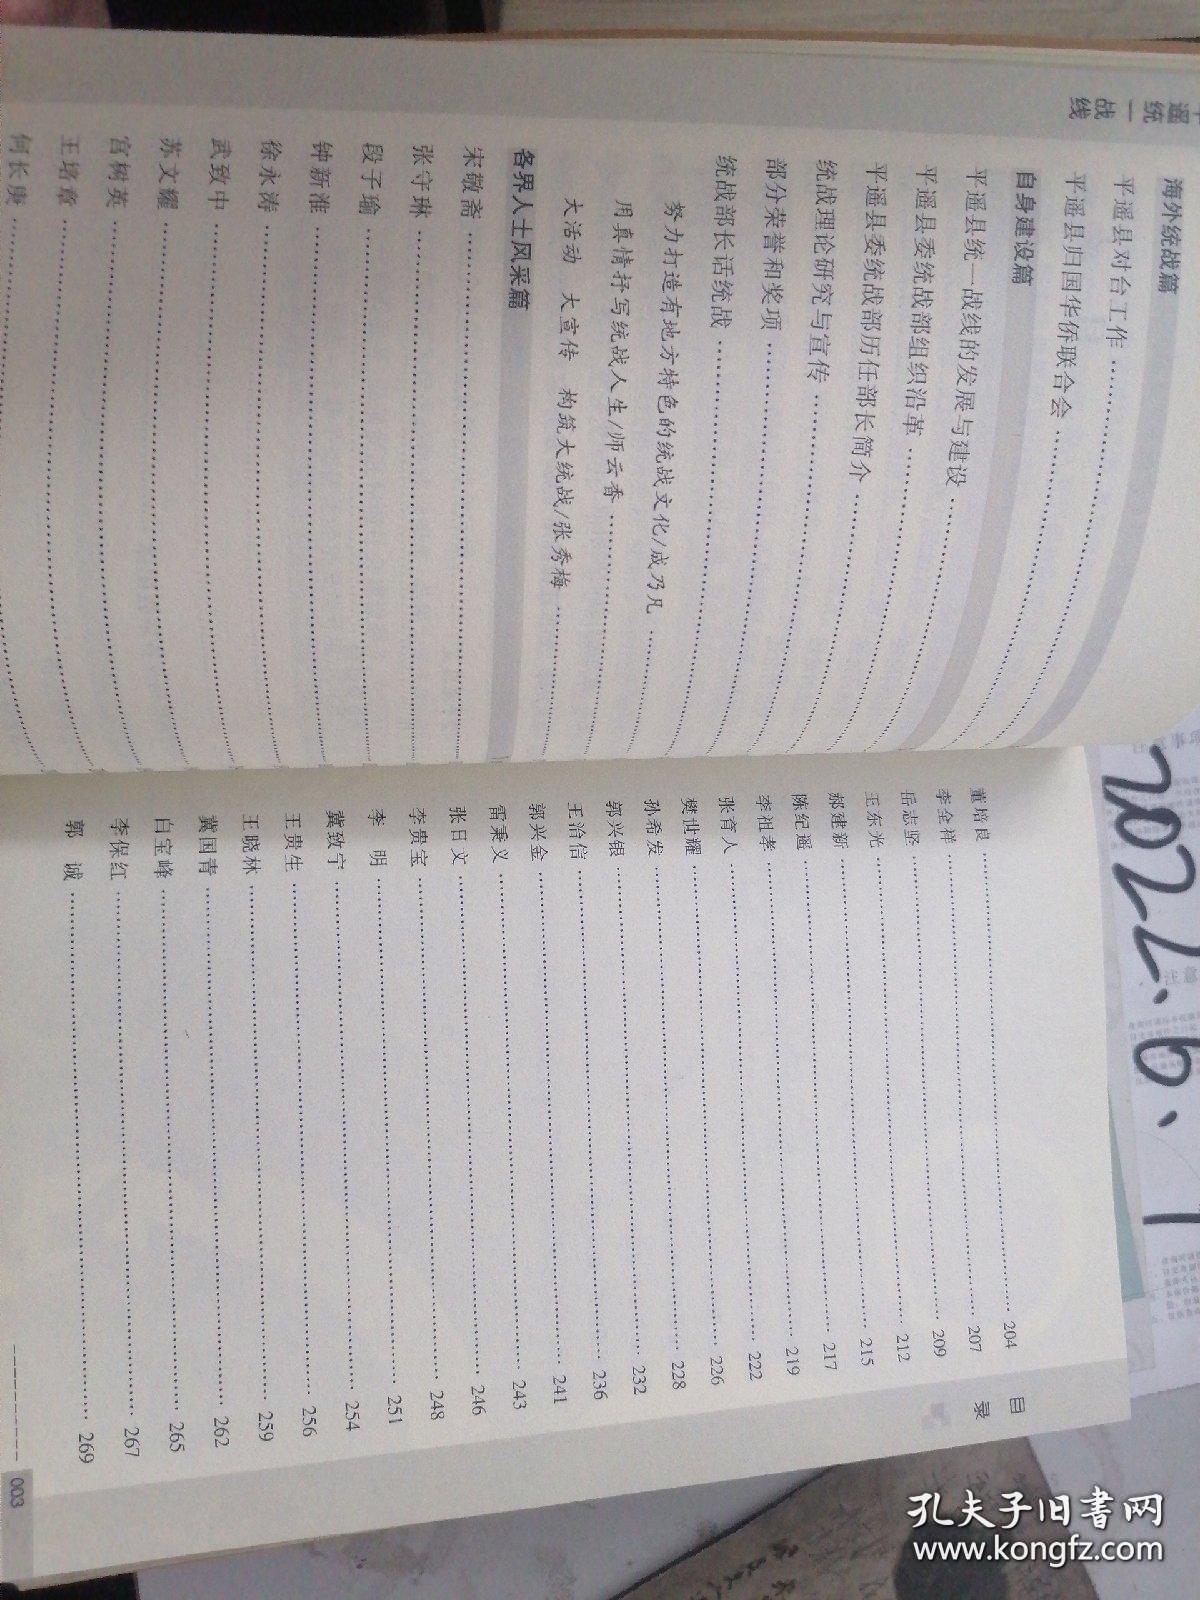 遥统一战线
海外统战篇
平遥县对台工作
平遥县归国华侨联合会
自身建设篇
平遥县统一战线的发展与建设
平遥县委统战部组织沿革
平遥县委统战部历任部长简介
统战理论研究与宣传
部分荣誉和奖项
统战部长话统战
努力打造有地方特色的统战文化/成乃凡
用真情抒写统战人生/师云香
大活动 大宣传 构筑大统战/张秀梅
各界人士风采篇
宋敬斋
张守琳
段子瑜
钟新淮
徐永涛
武致中
苏文耀
宫树英
王培章
何长庚
目录
董培良 204
李全祥 207
岳志坚 209
王东光 212
郝建新 215
陈纪遥 217
李祖孝 219
张育人 222
樊世耀 226
孙希发 228
郭兴银 232
王治信 236
郭兴金 241
雷秉义 243
张日文 246
李贵宝 248
李 明 251
冀致宁 254
王贵生 256
王晓林 259
冀国青 262
白宝峰 265
李保红 267
郭 诚 269
003
2022.6.1
注意
孔夫子旧书网
www.kongfz.com